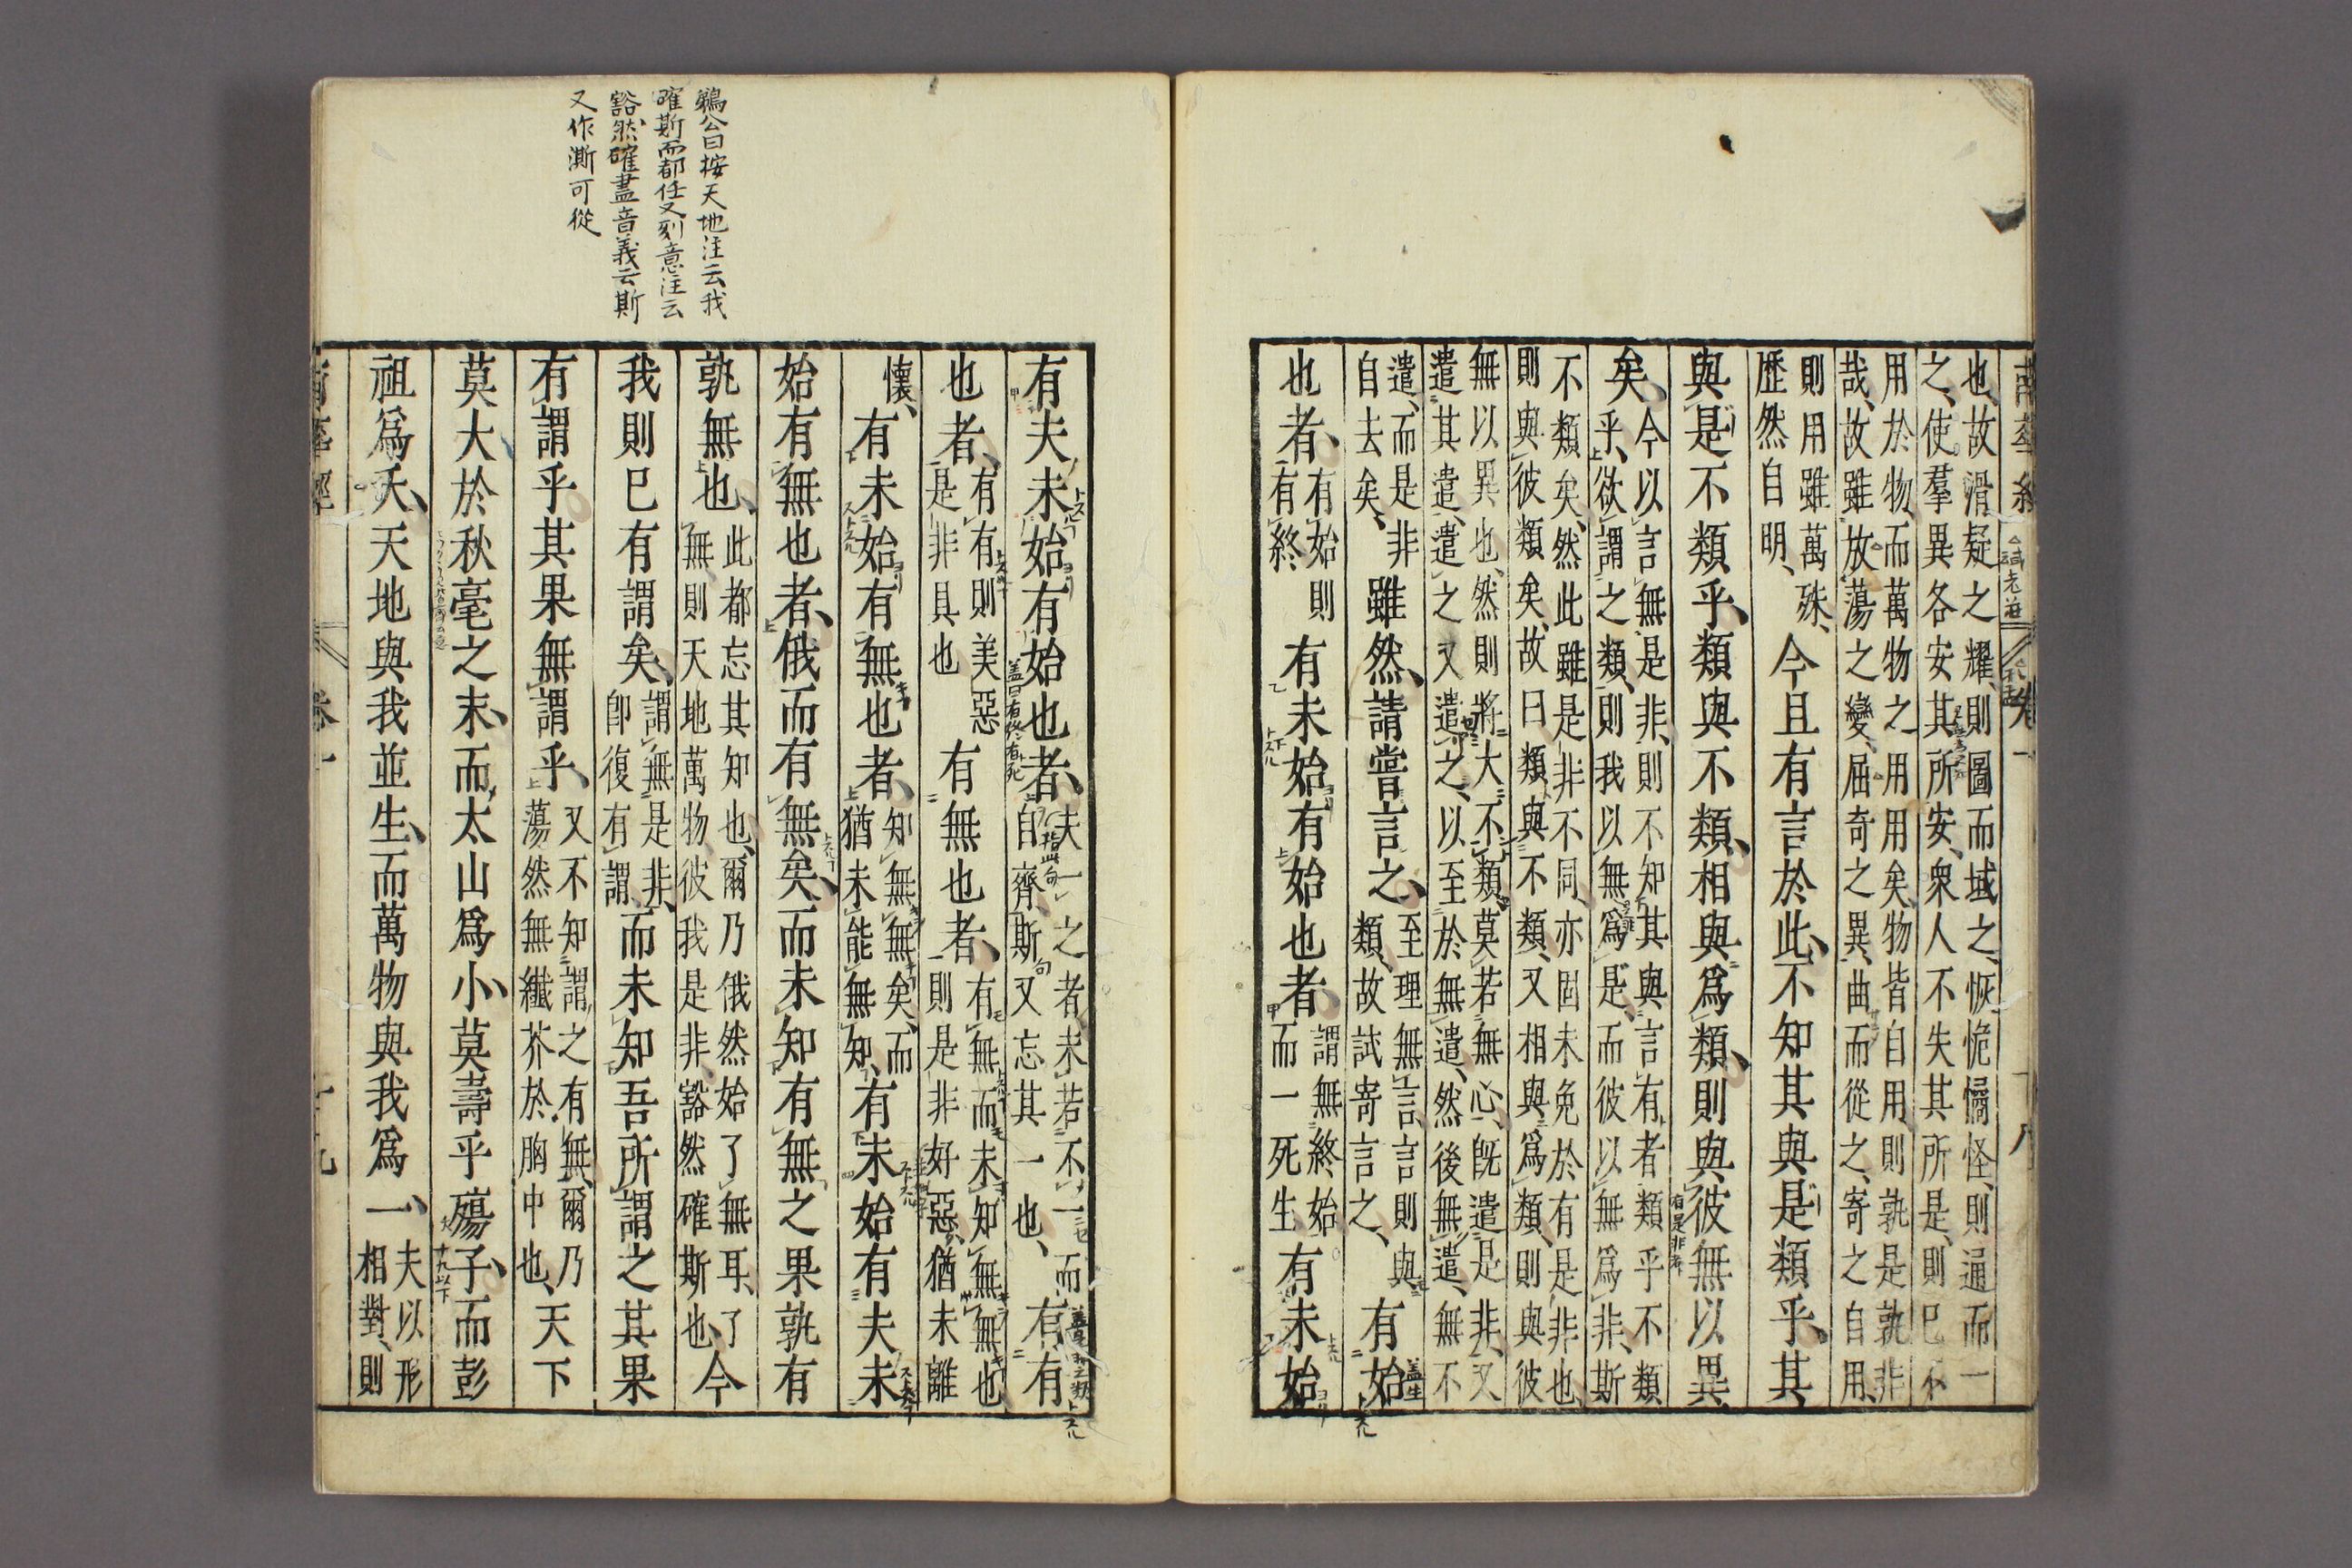 也、故滑疑之耀、則圖而域之、恢恑憰怪、則通而一
之、使羣異各安其所安、衆人不失其所是、則已不
用於物、而萬物之用用矣、物皆自用、則孰是孰非
哉、故雖放蕩之變、屈奇之異、曲而從之、寄之自用、
則用雖萬殊、
歷然自明、
今且有言於此、不知其與是類乎、其
與是不類乎、類與不類、相與爲類、則與彼無以異
矣、
今以言無是非、則不知其與言有者類乎不類
乎、欲謂之類、則我以無爲是、而彼以無爲非、斯
不類矣、然此雖是非不同、亦固未免於有是非也、
則與彼類矣、故曰類與不類、又相與爲類、則與彼
無以異也、然則將大不類、莫若無心、旣遣是非、又
遣其遣、遣之又遣之、以至於無遣、然後無遣、無不
遣、而是非
自去矣、
雖然、請嘗言之、
至理無言、言則與
類、故試寄言之、
有始
也者、
有始則
有終
有未始有始也者、
謂無終始
而一死生
有未始
有夫未始有始也者、
夫一之者、未若不一而
自齊、斯又忘其一也、
有有
也者、
有有則美惡
是非具也
有無也者、
有無而未知無無也
則是非好惡、猶未離
懷、
有未始有無也者、
知無無矣、而
猶未能無知、
有未始有夫未
始有無也者、俄而有無矣、而未知有無之果孰有
孰無也、
此都忘其知也、爾乃俄然始了無耳、了
無、則天地萬物彼我是非、豁然確斯也、
今
我則已有謂矣、
謂無是非、
卽復有謂、
而未知吾所謂之其果
有謂乎其果無謂乎、
又不知謂之有無、爾乃
蕩然無纖芥於胸中也、
天下
莫大於秋毫之末、而太山爲小、莫壽乎殤子、而彭
祖爲夭、天地與我並生、而萬物與我爲一、
夫以形
相對、則
鵜公曰按天地注云我
確斯而都任又刻意注云
豁然確盡音義云斯
又作澌可從